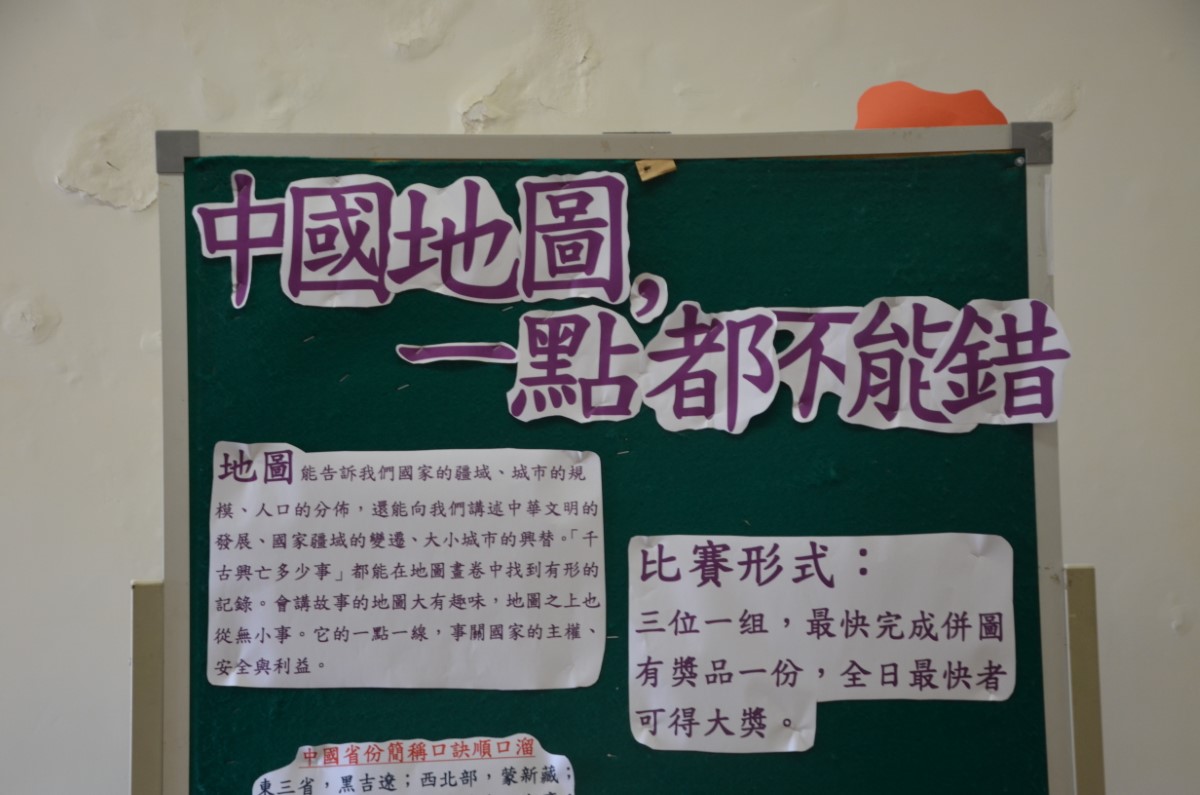 中國地圖，
一點都不能錯
地圖能告訴我們國家的疆域、城市的規
模、人口的分佈，還能向我們講述中華文明的
發展、國家疆域的變遷、大小城市的興替。「千
古興亡多少事」都能在地圖畫卷中找到有形的
記錄。會講故事的地圖大有趣味，地圖之上也
從無小事。它的一點一線，事關國家的主權、
安全與利益。
比賽形式：
三位一组，最快完成併圖
有獎品一份，全日最快者
可得大獎。
中國省份簡稱口訣順口溜
東三省，黑吉遼；西北部，蒙新藏；